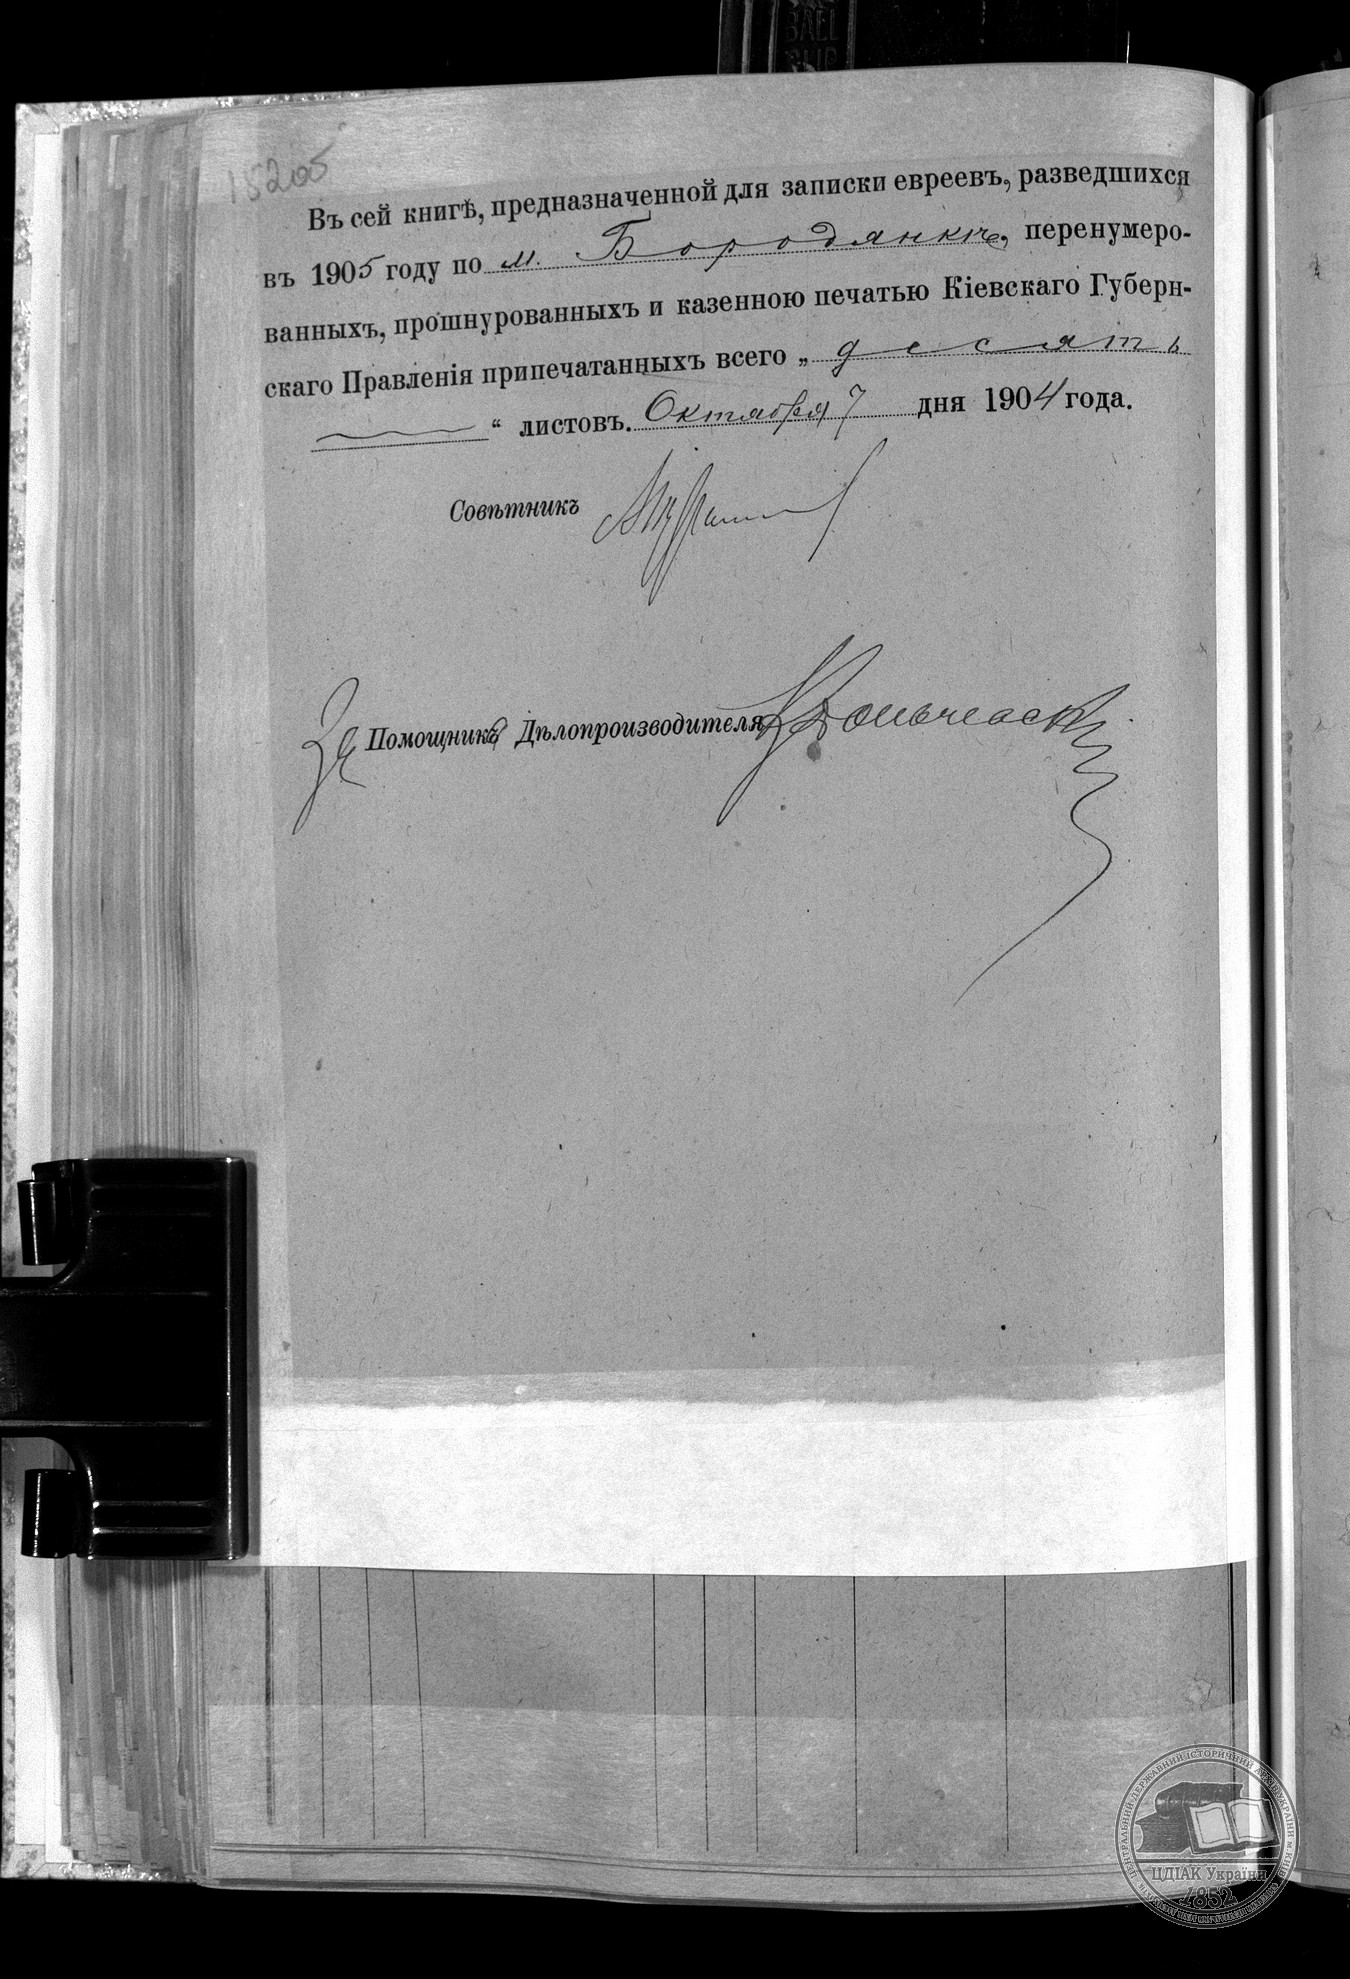 Въ сей книгѣ, предназначенной для записки евреевъ, разведшихся
въ 1905 году по м. Бородянкѣ, перенумеро-
ванныхъ, прошнурованныхъ и казенною печатью Кіевскаго Губерн-
скаго Правленія припечатанныхъ всего „ десять
“ листовъ. Октября 7 дня 1904 года.
Совѣтникъ
За Помощника Дѣлопроизводителя
ЦЕНТРАЛЬНИЙ ДЕРЖАВНИЙ ІСТОРИЧНИЙ АРХІВ УКРАЇНИ М. КИЇВ
ЦДІАК України
1852